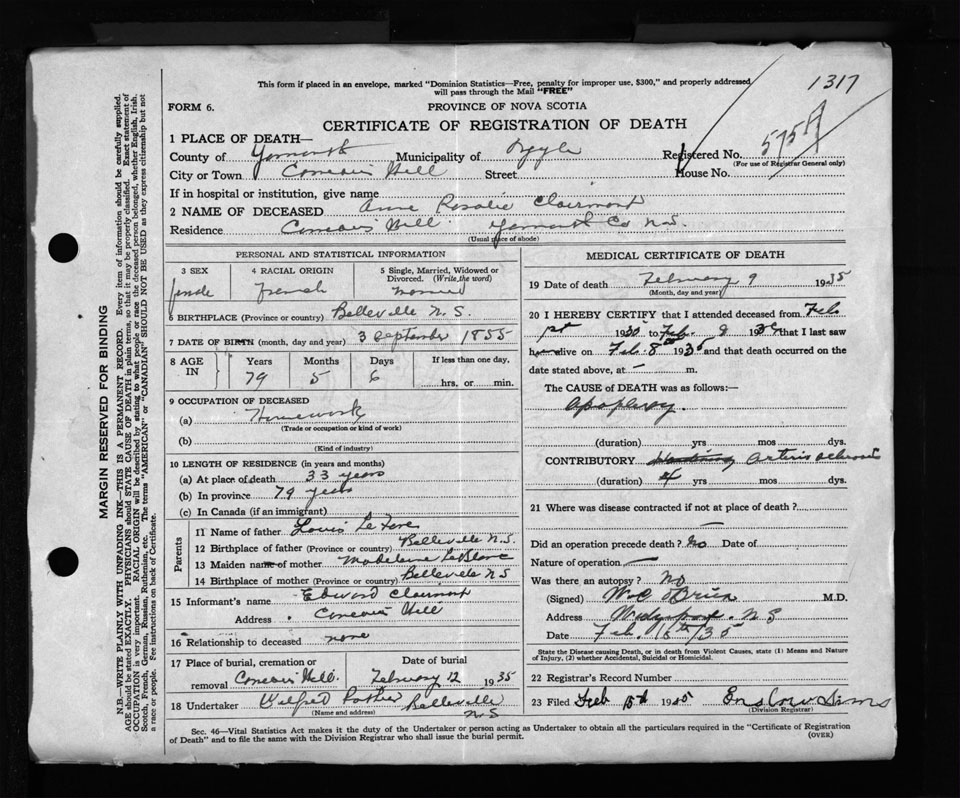 1317
This form if placed in an envelope, marked "Dominion Statistics—Free, penalty for improper use, $300," and properly addressed
will pass through the Mail "FREE"
FORM 6.
PROVINCE OF NOVA SCOTIA
CERTIFICATE OF REGISTRATION OF DEATH
1 PLACE OF DEATH—
County of Yarmouth Municipality of Argyle Registered No. 575A
(For use of Registrar General only)
City or Town Comeau's Hill Street House No.
If in hospital or institution, give name
2 NAME OF DECEASED Anne Rosalie Clairmont
Residence Comeau's Hill Yarmouth Co N.S.
(Usual place of abode)
PERSONAL AND STATISTICAL INFORMATION
3 SEX
female
4 RACIAL ORIGIN
French
5 Single, Married, Widowed or
Divorced. (Write the word)
Married
6 BIRTHPLACE (Province or country) Belleville N.S.
7 DATE OF BIRTH (month, day and year) 3 September 1855
8 AGE IN
Years 79
Months 5
Days 6
If less than one day,
hrs. or min.
9 OCCUPATION OF DECEASED
(a) Homework
(Trade or occupation or kind of work)
(b)
(Kind of industry)
10 LENGTH OF RESIDENCE (in years and months)
(a) At place of death 33 years
(b) In province 79 years
(c) In Canada (if an immigrant)
Parents
11 Name of father Louis
12 Birthplace of father (Province or country) Belleville N.S.
13 Maiden name of mother Madeleine LeBlanc
14 Birthplace of mother (Province or country) Belleville N S
15 Informant's name Edward Clairmont
Address Comeau's Hill
16 Relationship to deceased none
17 Place of burial, cremation or
removal Comeau's Hill.
Date of burial
February 12 1935
18 Undertaker Wilfred Pothier Belleville
N S
(Name and address)
MEDICAL CERTIFICATE OF DEATH
19 Date of death February 9 1935
(Month, day and year)
20 I HEREBY CERTIFY that I attended deceased from Feb
1st 1930 to Feb. 8 that I last saw
h alive on Feb 8th 1935 and that death occurred on the
date stated above, at — m.
The CAUSE of DEATH was as follows:—
Apoplexy.
(duration) yrs mos dys.
CONTRIBUTORY
(duration) 4 yrs mos dys.
21 Where was disease contracted if not at place of death? —
Did an operation precede death? No Date of
Nature of operation —
Was there an autopsy? No
(Signed) M.D.
Address Wedgeport. N S
Date Feb. /35
State the Disease causing Death, or in death from Violent Causes, state (1) Means and Nature
of Injury, (2) whether Accidental, Suicidal or Homicidal.
22 Registrar's Record Number
23 Filed Feb 1935 Enslow Sims
(Division Registrar)
Sec. 46—Vital Statistics Act makes it the duty of the Undertaker or person acting as Undertaker to obtain all the particulars required in the "Certificate of Registration
of Death" and to file the same with the Division Registrar who shall issue the burial permit.
(OVER)
MARGIN RESERVED FOR BINDING
N.B.—WRITE PLAINLY WITH UNFADING INK—THIS IS A PERMANENT RECORD. Every item of information should be carefully supplied.
AGE should be stated EXACTLY. PHYSICIANS should STATE CAUSE OF DEATH in plain terms, so that it may be properly classified. Exact statement of
OCCUPATION is very important. RACIAL ORIGIN will be described by stating to what people or race the deceased person belonged, whether English, Irish,
Scotch, French, German, Russian, Ruthenian, etc. The terms "AMERICAN" or "CANADIAN" SHOULD NOT BE USED as they express citizenship but not
a race or people. See instructions on back of Certificate.